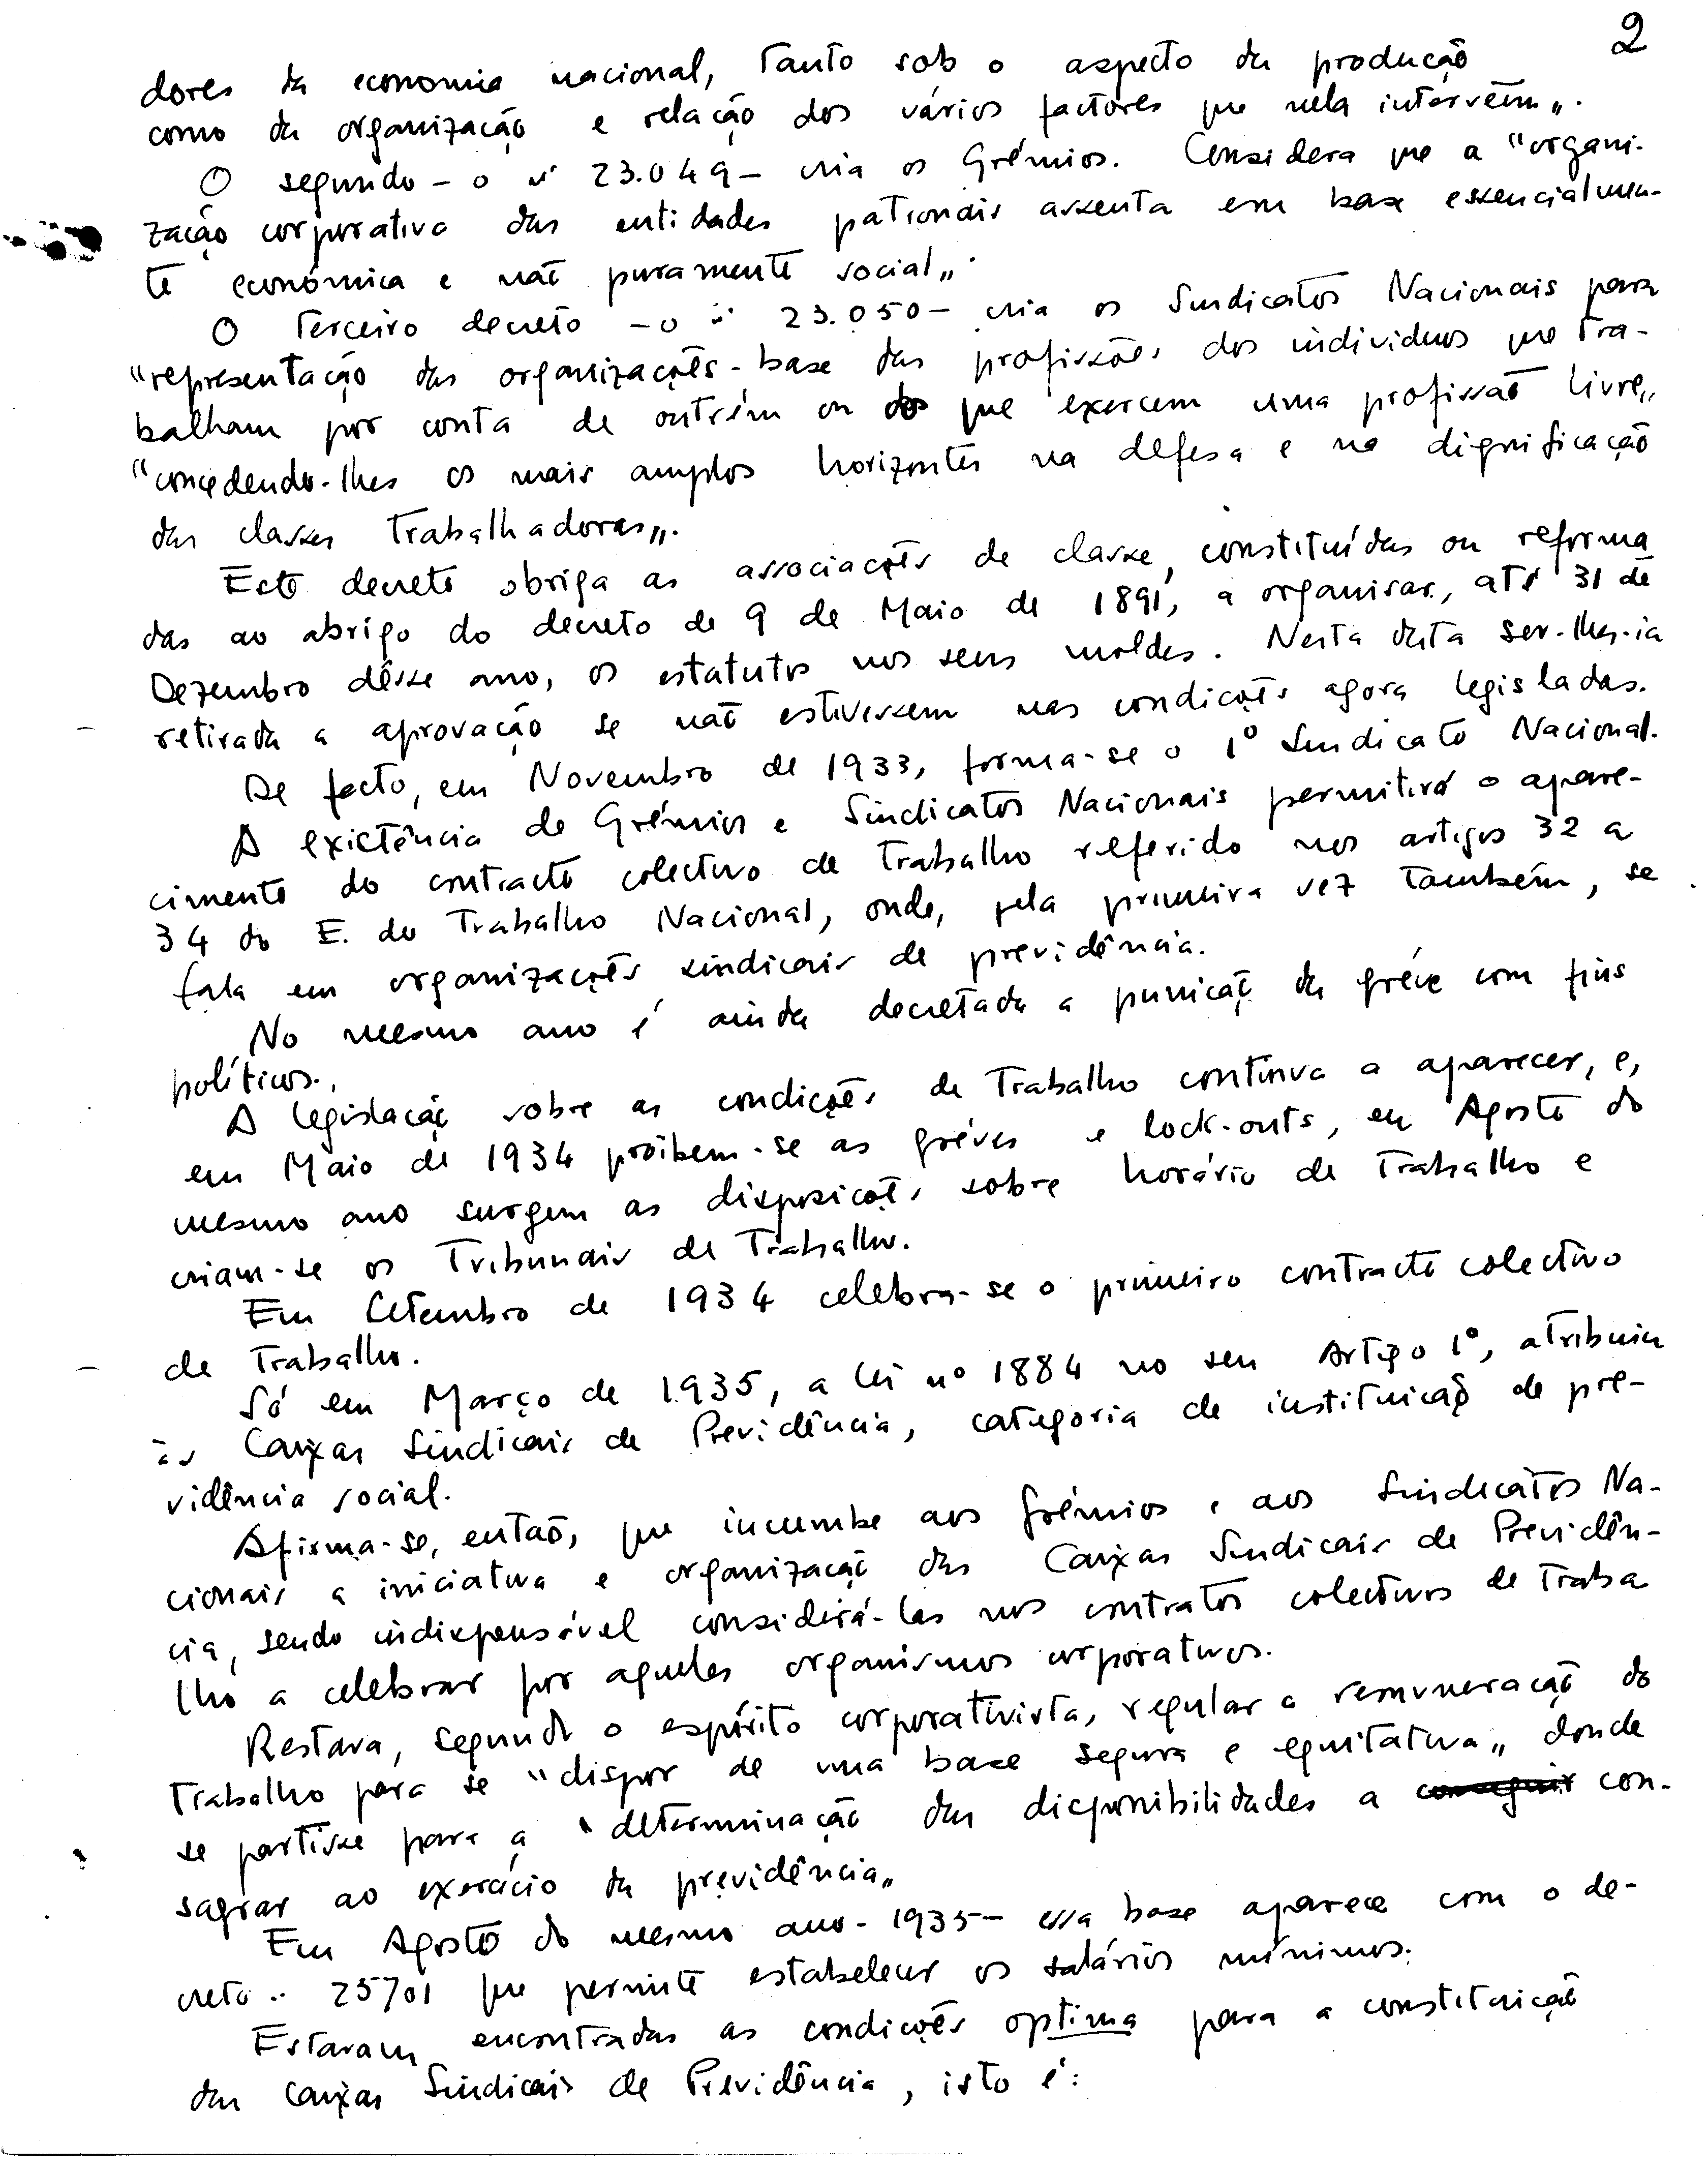 2
dores da economia nacional, tanto sob o aspecto da produção
como da organização e relação dos vários factores que nela intervêm„.
O segundo - o nº 23.049 - cria os Grémios. Considera que a "organi-
zação corporativa das entidades patronais assenta em base essencialmen-
te económica e não puramente social„.
O terceiro decreto - o nº 23.050 - cria os Sindicatos Nacionais para
"representação das organizações-base das profissões dos individuos que tra-
balham por conta de outrém ou dos que exercem uma profissão livre„
"concedendo-lhes os mais amplos horizontes na defesa e na dignificação
das classes trabalhadoras„.
Este decreto obriga as associações de classe, constituídas ou reforma
das ao abrigo do decreto de 9 de Maio de 1891, a organisar, até 31 de
Dezembro dêsse ano, os estatutos nos seus moldes. Nesta data ser-lhes-ia
retirada a aprovação se não estivessem nas condições agora legisladas.
De facto, em Novembro de 1933, forma-se o 1º Sindicato Nacional.
A existência de Grémios e Sindicatos Nacionais permitirá o apare-
cimento do contracto colectivo de trabalho referido nos artigos 32 a
34 do E. do Trabalho Nacional, onde, pela primeira vez também, se
fala em organizações sindicais de previdência.
No mesmo ano é ainda decretada a punição da gréve com fins
políticos.
A legislação sobre as condições de trabalho continua a aparecer, e,
em Maio de 1934 proibem-se as gréves e lock-outs, em Agosto do
mesmo ano surgem as disposições sobre horário de trabalho e
criam-se os Tribunais de Trabalho.
Em Setembro de 1934 celebra-se o primeiro contracto colectivo
de trabalho.
Só em Março de 1935, a lei nº 1884 no seu Artigo 1º, atribuiu
às Caixas Sindicais de Previdência, categoria de instituição de pre-
vidência social.
Afirma-se, então, que incumbe aos Grémios e aos Sindicatos Na-
cionais a iniciativa e organização das Caixas Sindicais de Previdên-
cia, sendo indispensável considerá-las nos contratos colectivos de traba
lho a celebrar por aqueles organismos corporativos.
Restava, segundo o espírito corporativista, regular a remuneração do
trabalho para se "dispor de uma base segura e equitativa„ donde
se partisse para a "determinação das disponibilidades a conseguir con-
sagrar ao exercício da previdência„
Em Agosto do mesmo ano - 1935 - essa base aparece com o de-
creto nº 25701 que permite estabelecer os salários mínimos.
Estavam encontradas as condições optima para a constituição
das Caixas Sindicais de Previdência, isto é: